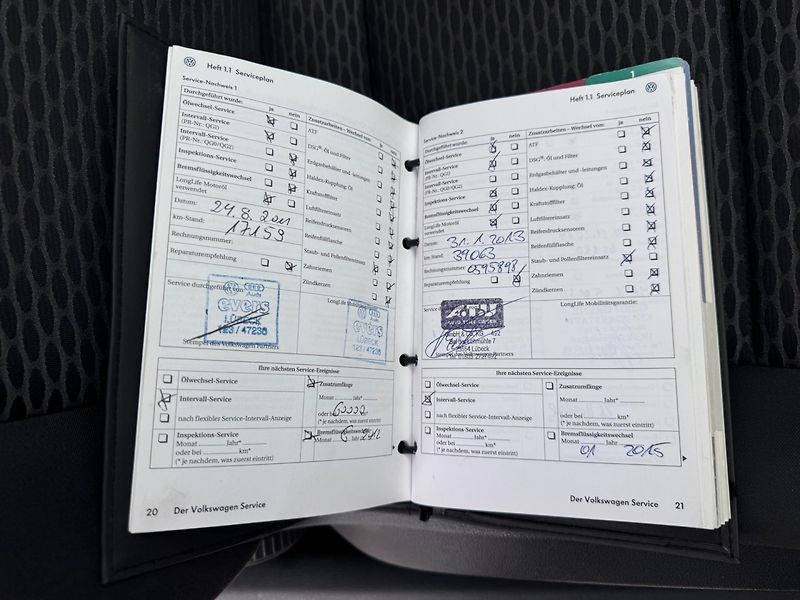 Heft 1.1 Serviceplan
Service-Nachweis 1
Durchgeführt wurde: ja nein
Ölwechsel-Service
Intervall-Service
(PR-Nr.: QG1)
Intervall-Service
(PR-Nr.: QG0/QG2)
Inspektions-Service
Bremsflüssigkeitswechsel
LongLife Motoröl
verwendet
Datum: 24.8.2011
km-Stand: 17159
Rechnungsnummer:
Reparaturempfehlung
Zusatzarbeiten – Wechsel von: ja nein
ATF
DSG®: Öl und Filter
Erdgasbehälter und -leitungen
Haldex-Kupplung: Öl
Kraftstofffilter
Luftfiltereinsatz
Reifendrucksensoren
Reifenfüllflasche
Staub- und Pollenfiltereinsatz
Zahnriemen
Zündkerzen
Service durchgeführt von:
Audi
evers
LÜBECK
123/47236
Stempel des Volkswagen Partners
Audi
evers
LÜBECK
123/47236
Ihre nächsten Service-Ereignisse
Ölwechsel-Service
Intervall-Service
nach flexibler Service-Intervall-Anzeige
Inspektions-Service
Monat Jahr*
oder bei km*
(* je nachdem, was zuerst eintritt)
Zusatzumfänge
Monat Jahr*
oder bei 60000
(* je nachdem, was zuerst eintritt)
Bremsflüssigkeitswechsel
Monat Jahr
20 Der Volkswagen Service
1
Heft 1.1 Serviceplan
Service-Nachweis 2
Durchgeführt wurde: ja nein
Ölwechsel-Service
Intervall-Service
(PR-Nr.: QG1)
Intervall-Service
(PR-Nr.: QG0/QG2)
Inspektions-Service
Bremsflüssigkeitswechsel
LongLife Motoröl
verwendet
Datum: 31.1.2013
km-Stand: 39063
Rechnungsnummer: 0595898
Reparaturempfehlung
Zusatzarbeiten – Wechsel von: ja nein
ATF
DSG®: Öl und Filter
Erdgasbehälter und -leitungen
Haldex-Kupplung: Öl
Kraftstofffilter
Luftfiltereinsatz
Reifendrucksensoren
Reifenfüllflasche
Staub- und Pollenfiltereinsatz
Zahnriemen
Zündkerzen
LongLife Mobilitätsgarantie:
Lübeck
Stempel des Volkswagen Partners
Ihre nächsten Service-Ereignisse
Ölwechsel-Service
Intervall-Service
nach flexibler Service-Intervall-Anzeige
Inspektions-Service
Monat Jahr*
oder bei km*
(* je nachdem, was zuerst eintritt)
Zusatzumfänge
Monat Jahr*
oder bei km*
(* je nachdem, was zuerst eintritt)
Bremsflüssigkeitswechsel
Monat Jahr
01 2015
Der Volkswagen Service 21